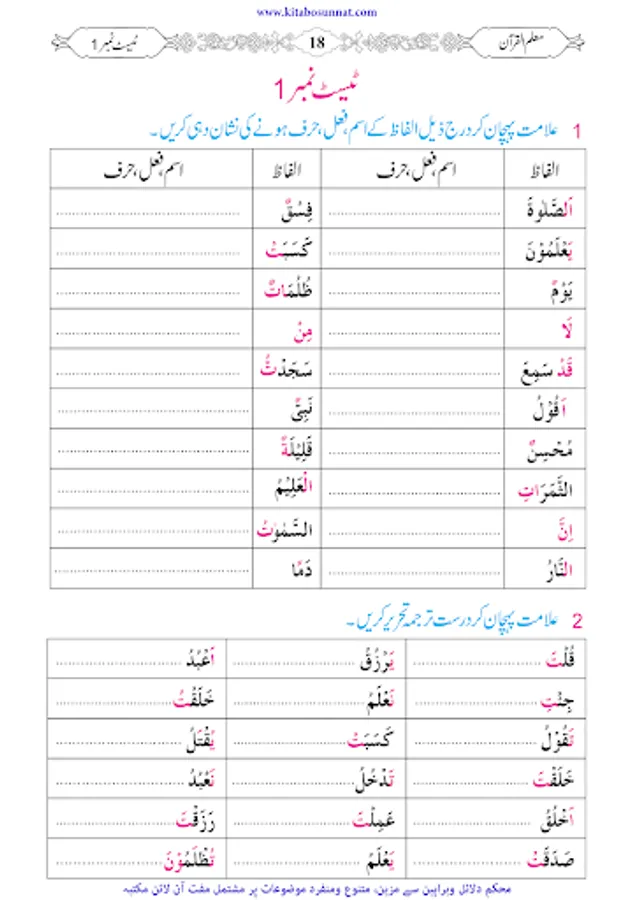 www.kitabosunnat.com
معلم القرآن 18 ٹیسٹ نمبر 1
ٹیسٹ نمبر 1
1 علامت پہچان کر درج ذیل الفاظ کے اسم، فعل، حرف ہونے کی نشان دہی کریں۔
الفاظ اسم، فعل، حرف الفاظ اسم، فعل، حرف
اَلصَّلٰوةَ ........ فِسْقٌ ........
يَعْلَمُوْنَ ........ كَسَبَتْ ........
يَوْمٌ ........ ظُلُمَاتٌ ........
لَا ........ مِنْ ........
قَدْ سَمِعَ ........ سَجَدْتُ ........
اَقُوْلُ ........ نَبِيٌّ ........
مُحْسِنٌ ........ قَلِيْلَةٌ ........
الثَّمَرَاتِ ........ الْعَلِيْمُ ........
اِنَّ ........ السَّمٰوٰتُ ........
النَّارُ ........ دَمًا ........
2 علامت پہچان کر درست ترجمہ تحریر کریں۔
قُلْتَ ........ يَرْزُقُ ........ اَعْبُدُ ........
جِئْتِ ........ نَعْلَمُ ........ خَلَقْتُ ........
تَقُوْلُ ........ كَسَبَتْ ........ يُقْتَلُ ........
خَلَقْتَ ........ تَدْخُلُ ........ نَعْبُدُ ........
اَخْلُقُ ........ عَمِلْتَ ........ رَزَقْتَ ........
صَدَقْتُ ........ يَعْلَمُ ........ تُظْلَمُوْنَ ........
محکم دلائل وبراہین سے مزین، متنوع ومنفرد موضوعات پر مشتمل مفت آن لائن مکتبہ